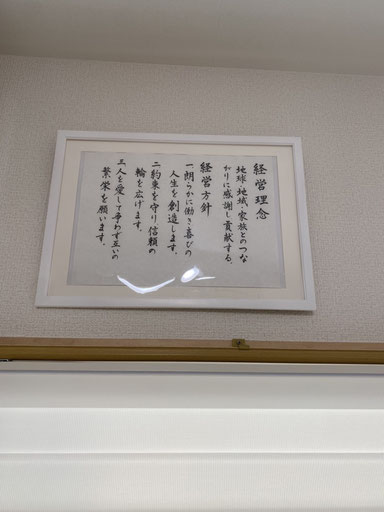 経営理念
地球・地域・家族とのつな
がりに感謝し貢献する。
経営方針
一、朗らかに働き喜びの
人生を創造します。
二、約束を守り信頼の
輪を広げます。
三、人を愛して争わず互いの
繁栄を願います。